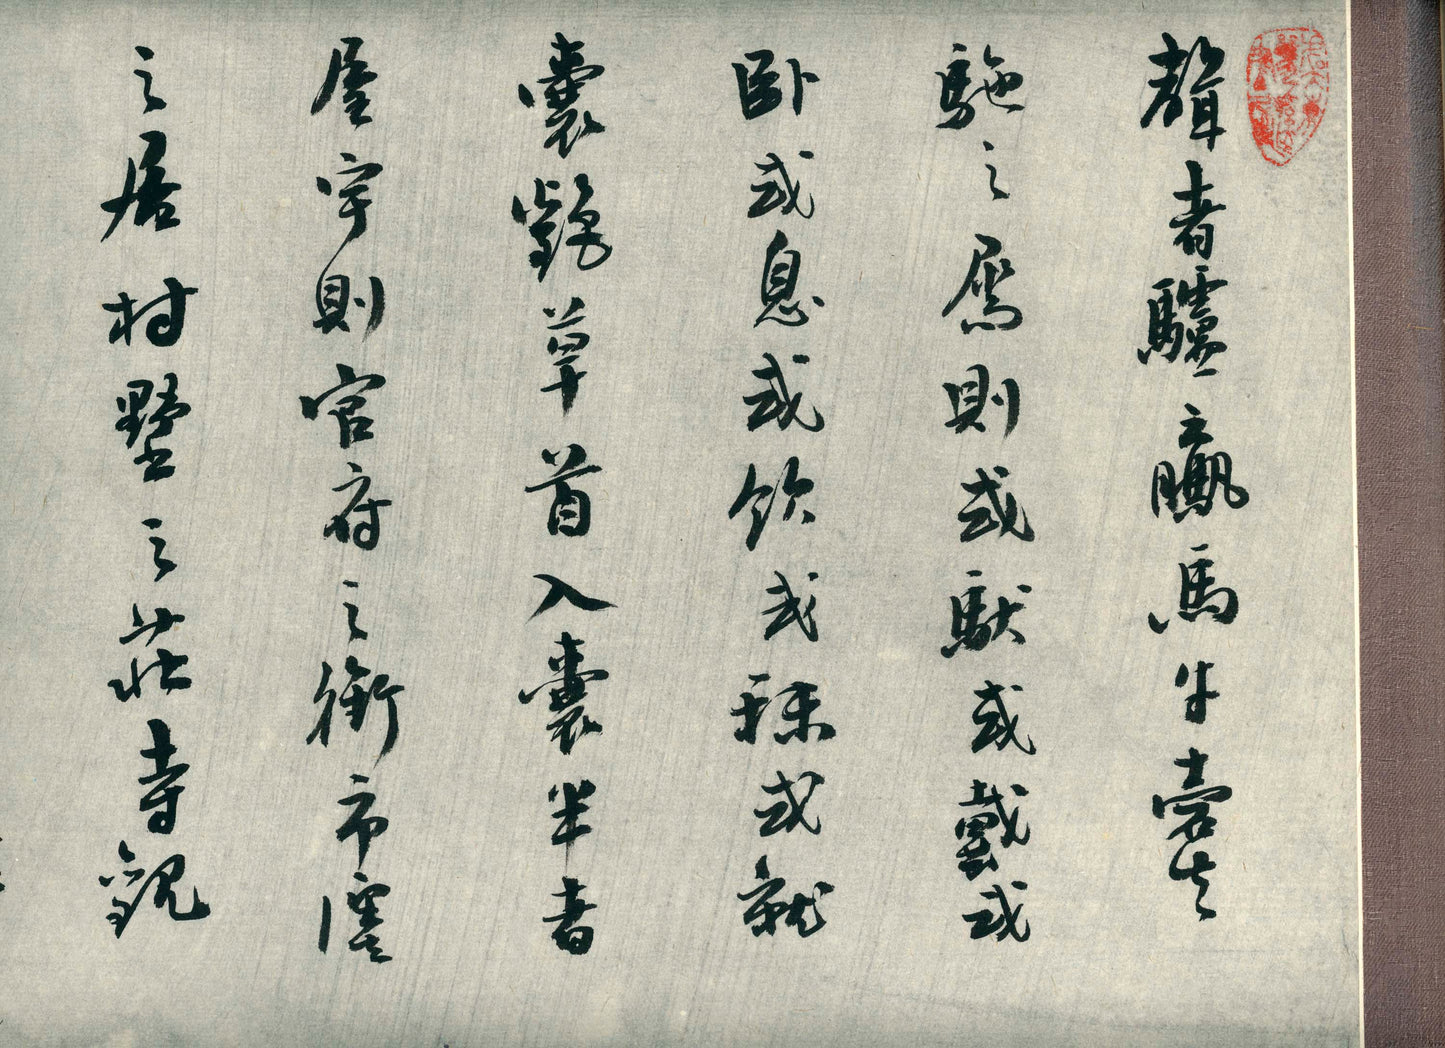 聲者驢驘馬牛橐
駞之屬則或馱或載或
卧或息或飲或秣或就
囊齕草首入囊半者
屋宇則官府之衙市廛
之居村墅之莊寺觀